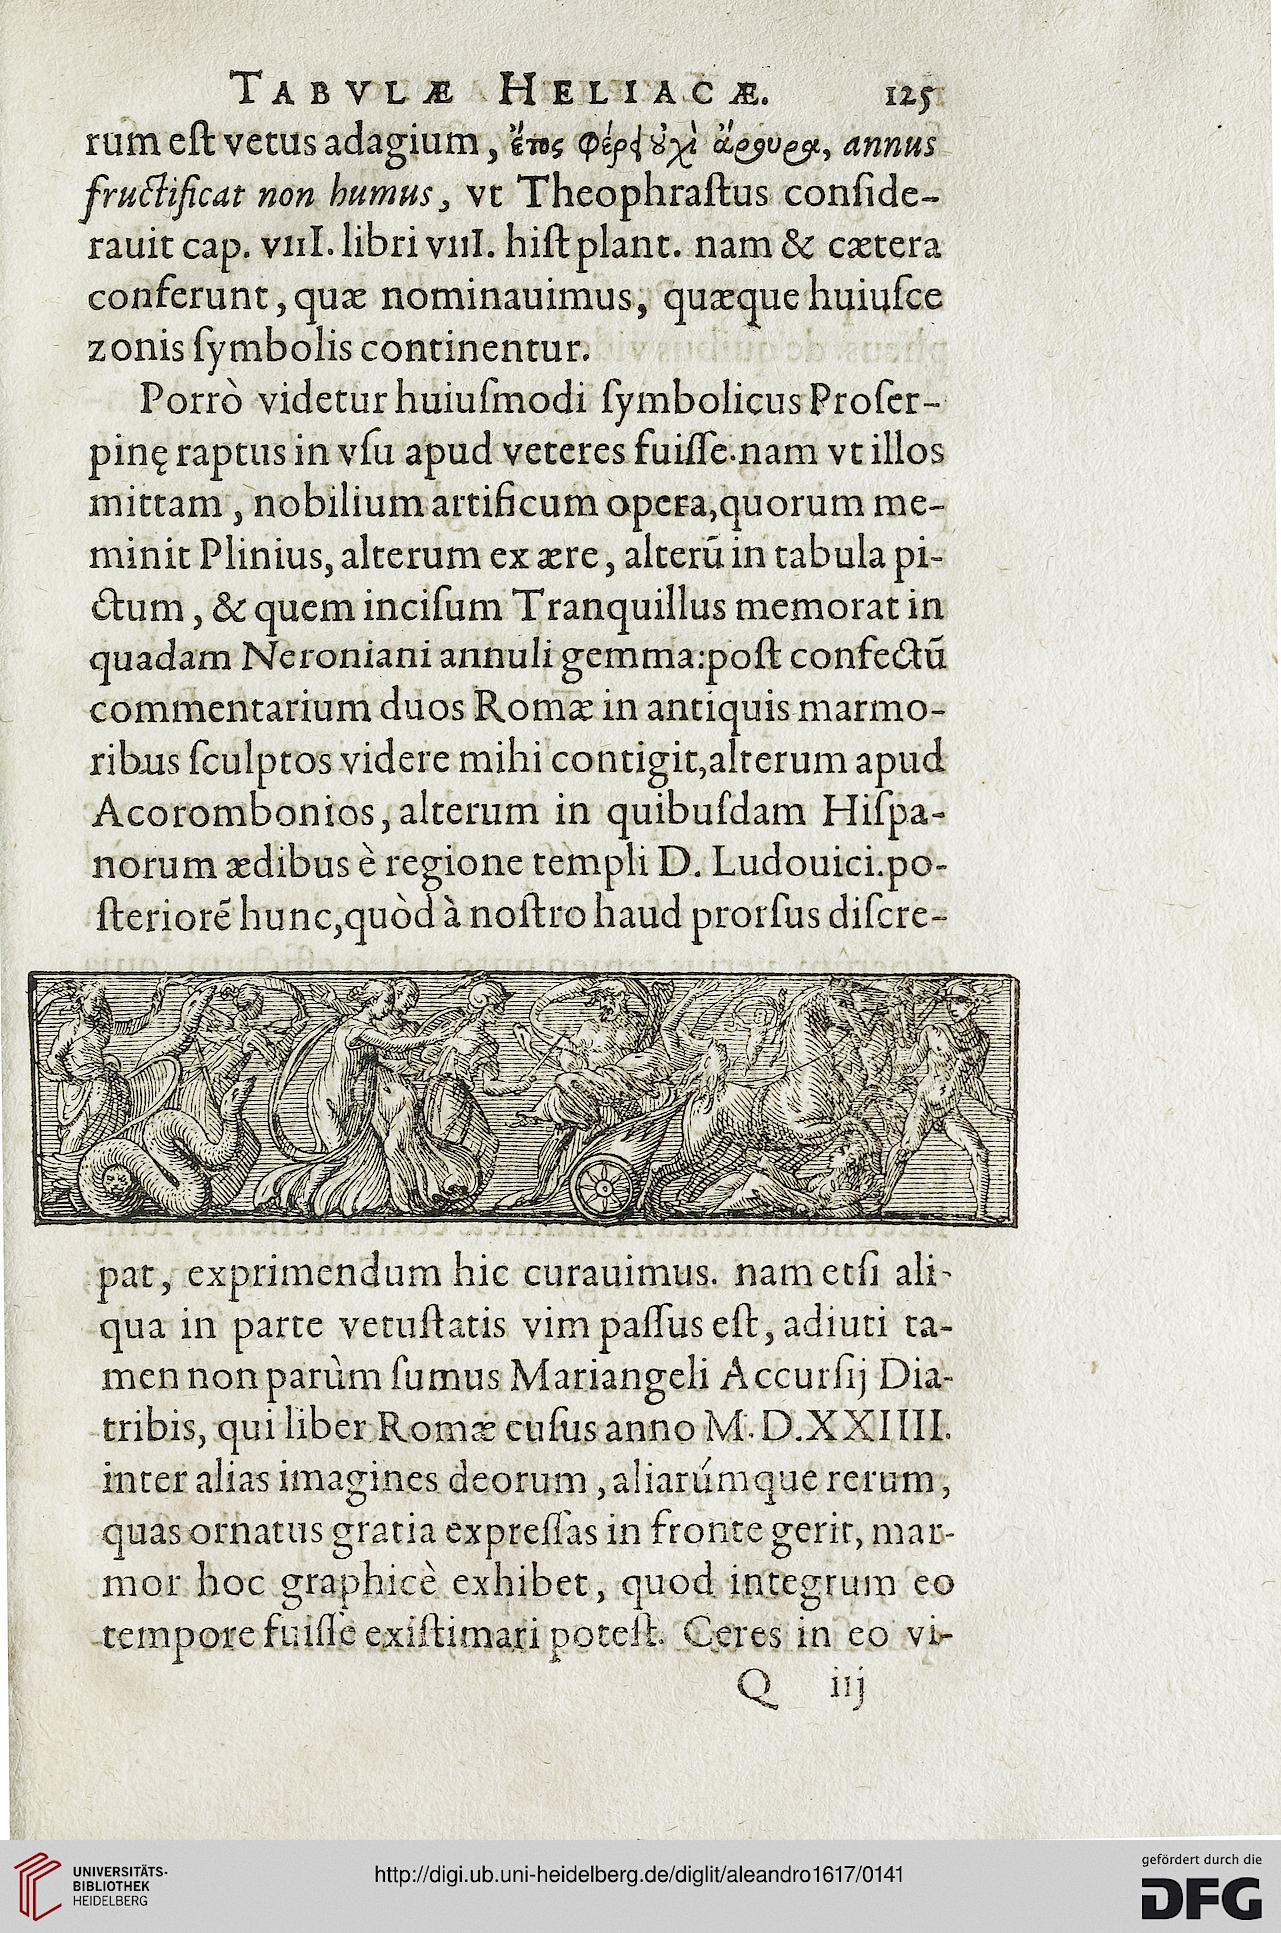 TABVLÆ HELIACÆ. 125
rum eſt vetus adagium, ἔτος φέρει οὐχὶ ἄρουρα, annus
fructificat non humus, vt Theophraſtus conſide-
rauit cap. VIII. libri VIII. hiſt plant. nam & cætera
conferunt, quæ nominauimus, quæque huiuſce
zonis ſymbolis continentur.
Porrò videtur huiuſmodi ſymbolicus Proſer-
pinę raptus in vſu apud veteres fuiſſe. nam vt illos
mittam, nobilium artificum opera, quorum me-
minit Plinius, alterum ex ære, alterū in tabula pi-
ctum, & quem inciſum Tranquillus memorat in
quadam Neroniani annuli gemma: poſt confectū
commentarium duos Romæ in antiquis marmo-
ribus ſculptos videre mihi contigit, alterum apud
Acorombonios, alterum in quibuſdam Hiſpa-
norum ædibus è regione templi D. Ludouici. po-
ſteriorē hunc, quòd à noſtro haud prorſus diſcre-
pat, exprimendum hic curauimus. nam etſi ali-
qua in parte vetuſtatis vim paſſus eſt, adiuti ta-
men non parùm ſumus Mariangeli Accurſij Dia-
tribis, qui liber Romæ cuſus anno M. D. XXIIII.
inter alias imagines deorum, aliarúmque rerum,
quas ornatus gratia expreſſas in fronte gerit, mar-
mor hoc graphicè exhibet, quod integrum eo
tempore fuiſſe exiſtimari poteſt. Ceres in eo vi-
Q iij
UNIVERSITÄTS-
BIBLIOTHEK
HEIDELBERG
http://digi.ub.uni-heidelberg.de/diglit/aleandro1617/0141
gefördert durch die
DFG